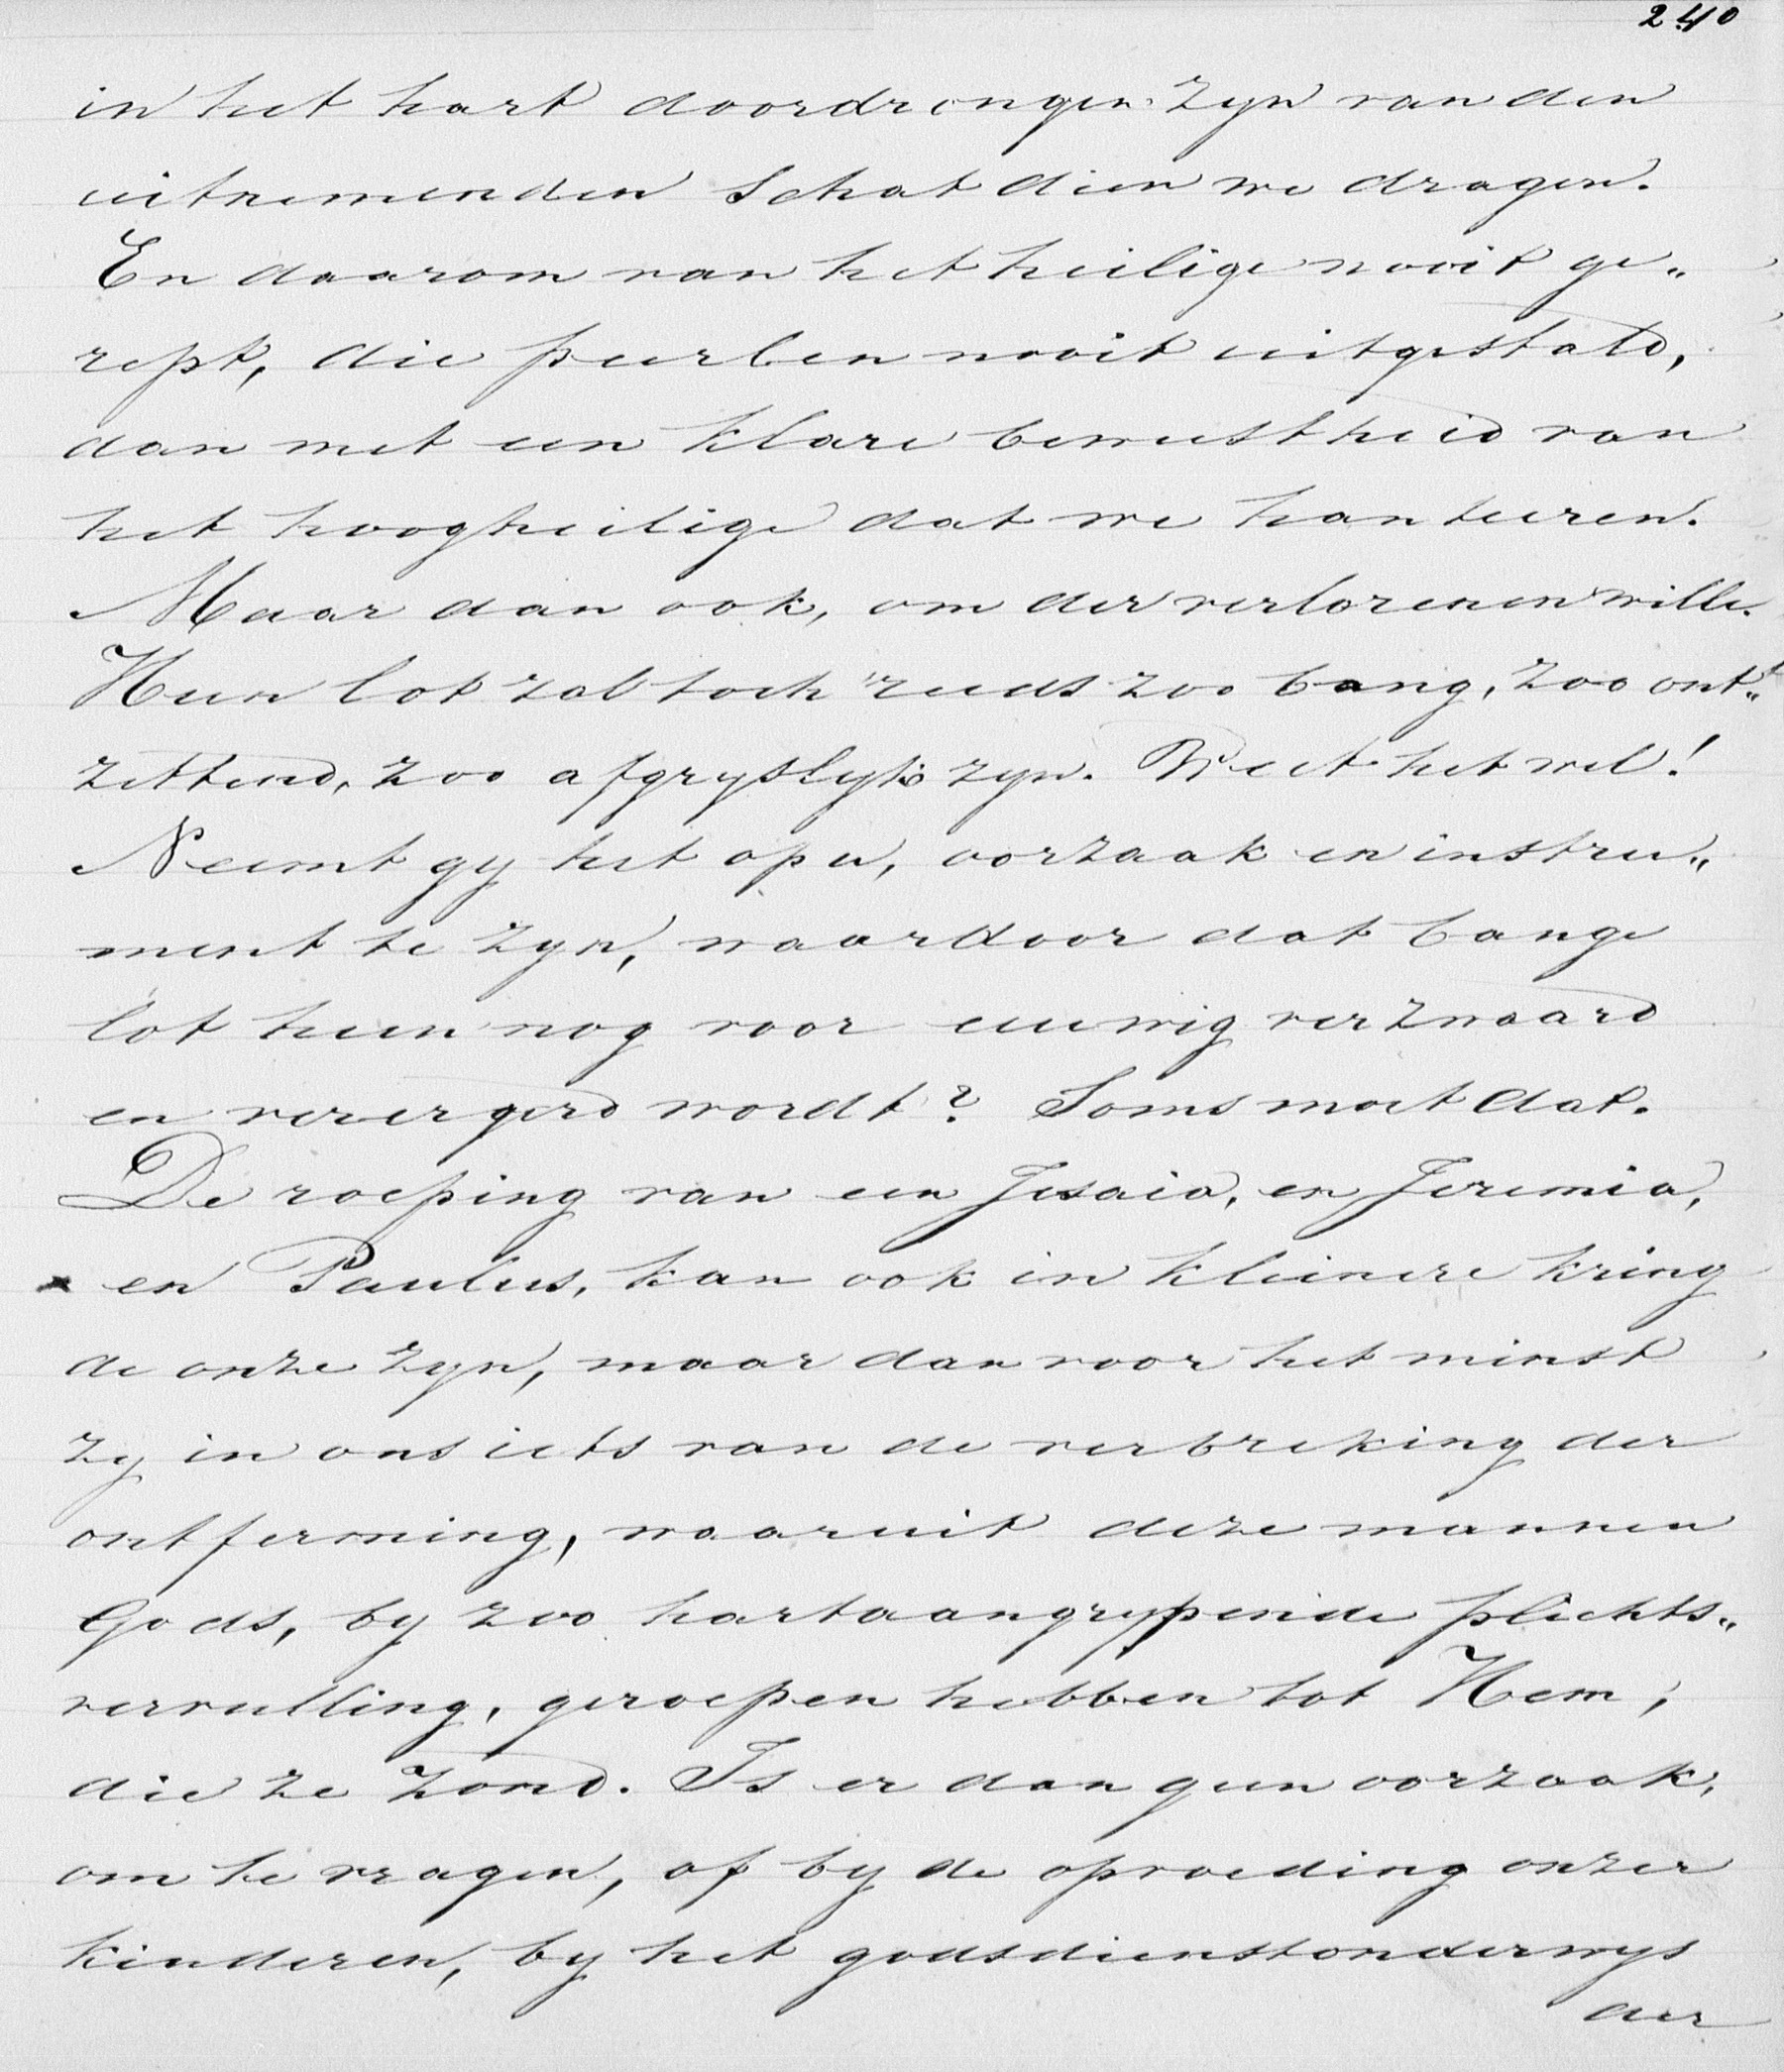 240
in het hart doordrongen zyn van den
uitnemenden Schat dien we dragen.
En daarom van het heilige nooit ge„
rept, die peerlen nooit uitgestald,
dan met een klare bewustheid van
het hoogheilige dat we hanteeren.
Maar dan ook, om der verlorenen wille.
Hun lot zal toch reeds zoo bang, zoo ont„
zettend, zoo afgryslyk zyn. Weet het wel!
Neemt gy het op u, oorzaak en instru„
ment te zyn, waardoor dat bange
lot hun nog voor eeuwig verzwaard
en verergerd wordt? Soms moet dat.
De roeping van een Jesaia, en Jeremia,
en Paulus, kan ook in kleinere kring
de onze zyn, maar dan voor het minst
zy in ons iets van de verbreking der
ontferming, waaruit deze mannen
Gods, by zoo hartaangrypende plichts„
vervulling, geroepen hebben tot Hem,
die ze zond. Is er dan geen oorzaak,
om te vragen, of by de opvoeding onzer
kinderen, by het godsdienstonderwys
der